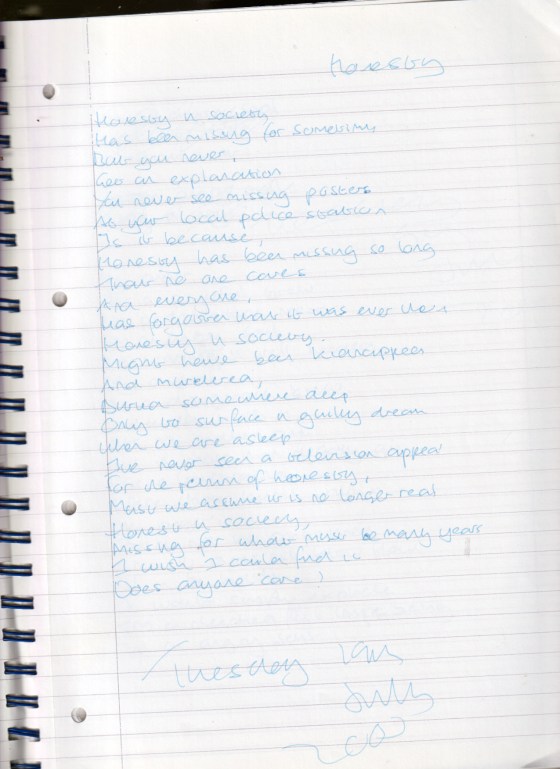 Honesty
Honesty in society
Has been missing for sometime
But you never,
Get an explanation
You never see missing posters
At your local police station
Is it because,
Honesty has been missing so long
That no one cares
And everyone,
Has forgotten that it was ever there
Honesty in society.
Might have been kidnapped
And murdered,
Buried somewhere deep
Only to surface in guilty dream
When we are asleep
I've never seen a television appeal
For the return of honesty,
Must we assume it is no longer real
Honesty in society,
Missing for what must be many years
I wish I could find it
Does anyone care
Tuesday
July